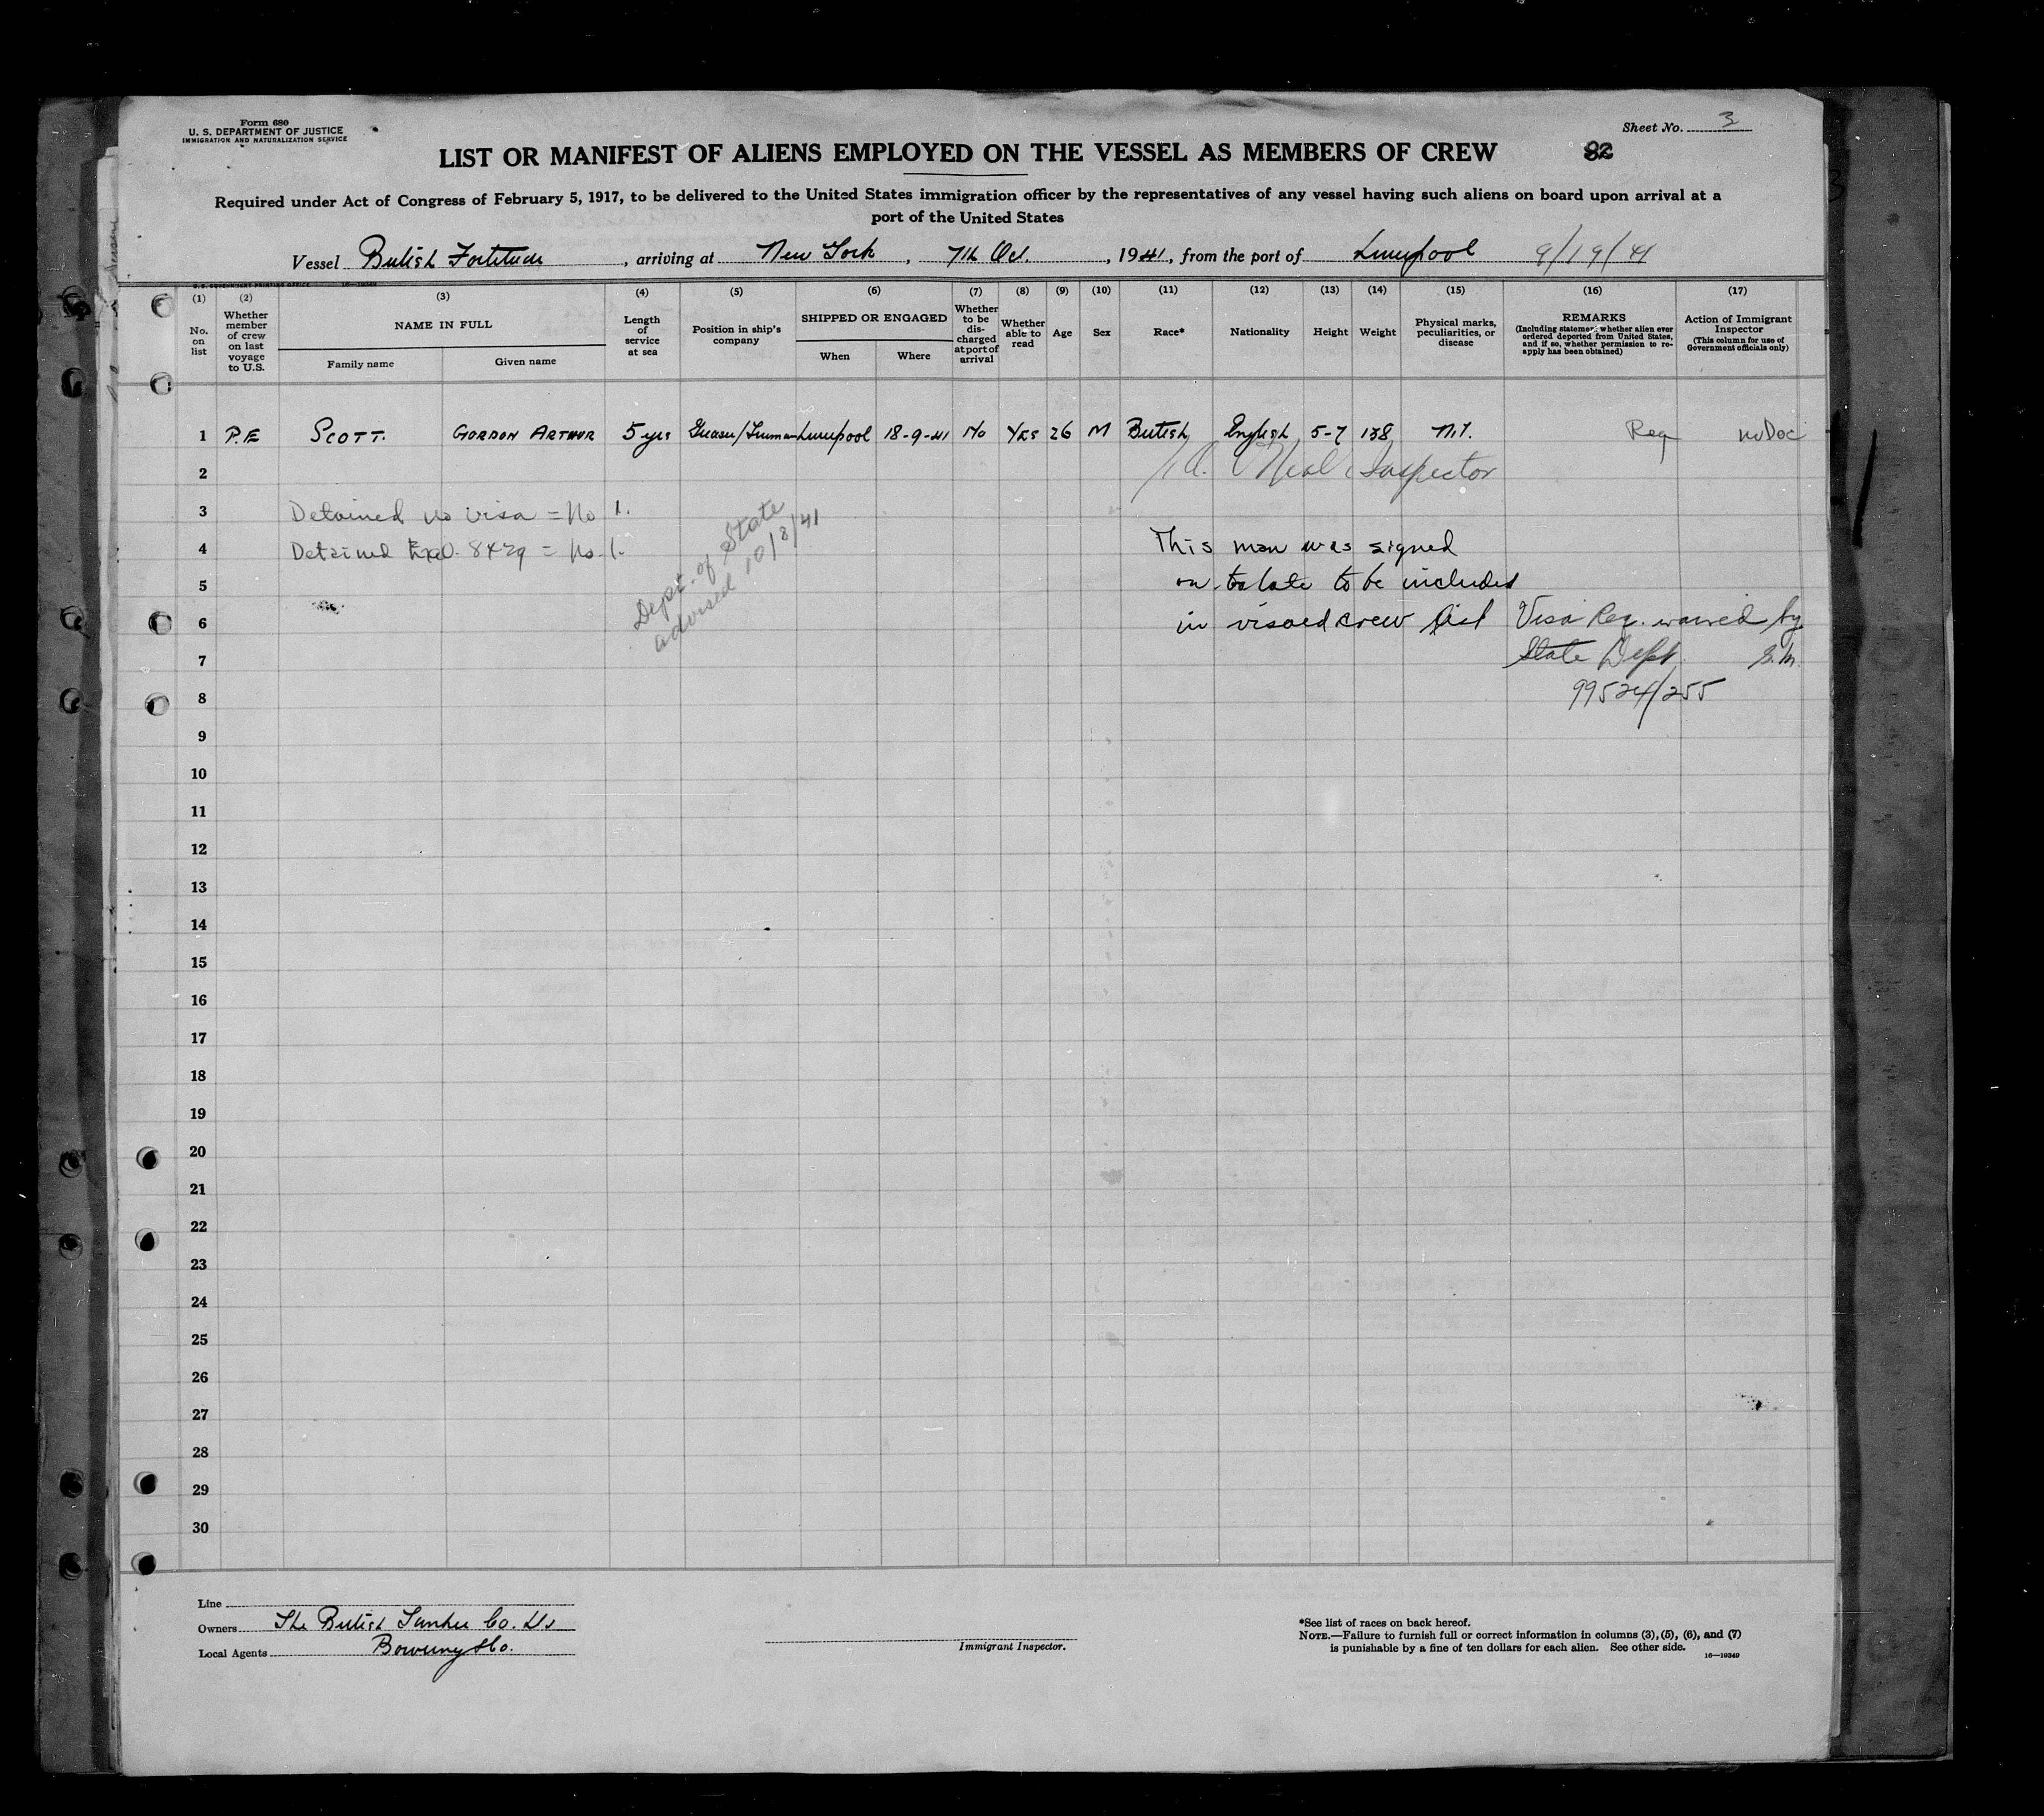 Form 680
U. S. DEPARTMENT OF JUSTICE
IMMIGRATION AND NATURALIZATION SERVICE
Sheet No. 3
LIST OR MANIFEST OF ALIENS EMPLOYED ON THE VESSEL AS MEMBERS OF CREW
82
Required under Act of Congress of February 5, 1917, to be delivered to the United States immigration officer by the representatives of any vessel having such aliens on board upon arrival at a
port of the United States
Vessel British Fortitude, arriving at New York, 7th Oct., 1941, from the port of Liverpool 9/19/41
U.S. GOVERNMENT PRINTING OFFICE 16—19349
(1) (2) (3) (4) (5) (6) (7) (8) (9) (10) (11) (12) (13) (14) (15) (16) (17)
No. on list
Whether member of crew on last voyage to U.S.
NAME IN FULL
Family name
Given name
Length of service at sea
Position in ship's company
SHIPPED OR ENGAGED
When
Where
Whether to be discharged at port of arrival
Whether able to read
Age
Sex
Race*
Nationality
Height
Weight
Physical marks, peculiarities, or disease
REMARKS
(Including statement whether alien ever ordered deported from United States, and if so, whether permission to reapply has been obtained)
Action of Immigrant Inspector
(This column for use of Government officials only)
1 P.E SCOTT. GORDON ARTHUR 5 yrs Greaser/Fireman Liverpool 18-9-41 No YES 26 M British English 5-7 138 Nil. Reg no Doc
2 O'Neal Inspector
3 Detained no visa = No 1.
4 Detained 8429 = No. 1.
Dept. of State
advised 10/8/41
This man was signed
5 on to late to be included
6 in visaed crew list Visa Req. waived by
7 State Dept. S.M.
8 99524/255
9
10
11
12
13
14
15
16
17
18
19
20
21
22
23
24
25
26
27
28
29
30
Line
Owners The British Tanker Co. Ld
Local Agents Bowring & Co.
Immigrant Inspector.
*See list of races on back hereof.
NOTE.—Failure to furnish full or correct information in columns (3), (5), (6), and (7)
is punishable by a fine of ten dollars for each alien. See other side.
16—19349